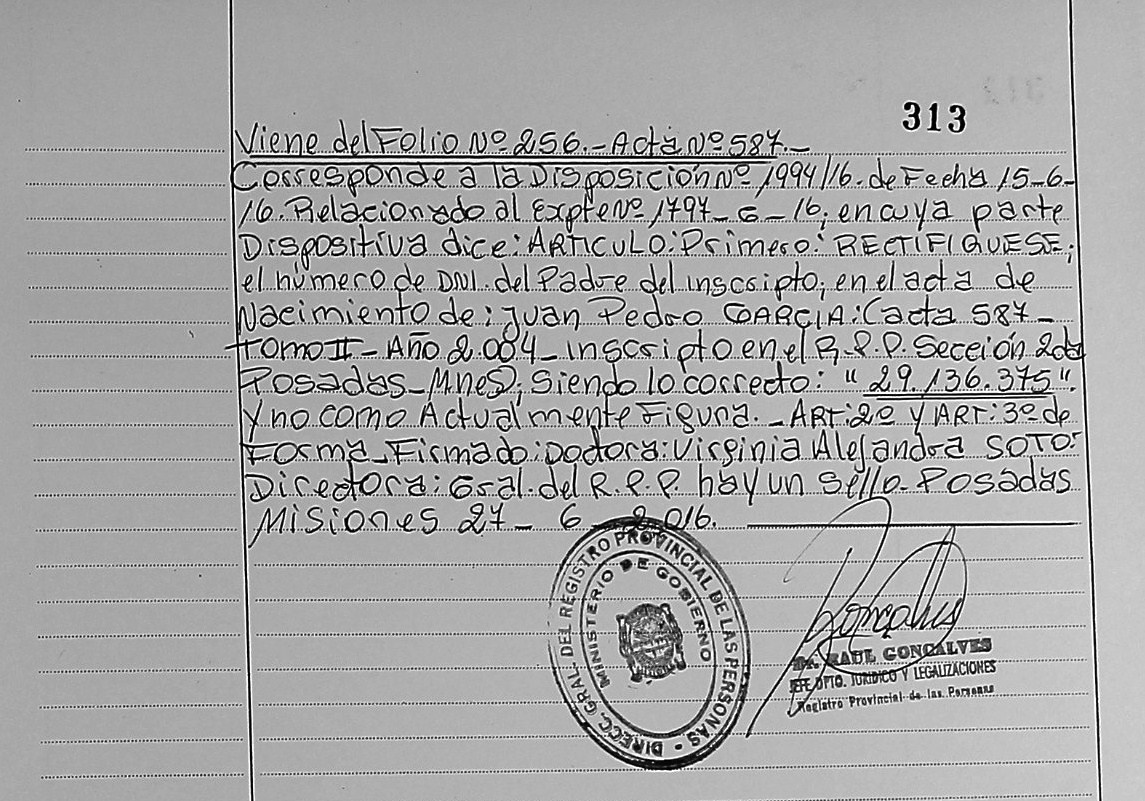 313
Viene del Folio Nº 256.- Acta Nº 587.-
Corresponde a la Disposición Nº 1994/16. de Fecha 15-6-
16. Relacionado al Expte Nº 1797-G-16; en cuya parte
Dispositiva dice: ARTICULO: Primero: RECTIFIQUESE;
el número de DNI. del Padre del inscripto; en el acta de
Nacimiento de: Juan Pedro GARCIA: (acta 587-
Tomo II - Año 2.004 - inscripto en el R.P.P. Sección 2da
Posadas - Mnes); Siendo lo correcto: "29.136.375".
y no como Actualmente Figura. - ART: 2º y ART: 3º de
Forma - Firmado: Doctora: Virginia Alejandra SOTO:
Directora: Gral. del R.P.P. hay un Sello - Posadas
Misiones 27-6-2.016.
DIRECC. GRAL. DEL REGISTRO PROVINCIAL DE LAS PERSONAS
MINISTERIO DE GOBIERNO
Goncalves
Dr. RAUL GONCALVES
JEFE DPTO. JURIDICO Y LEGALIZACIONES
Registro Provincial de las Personas